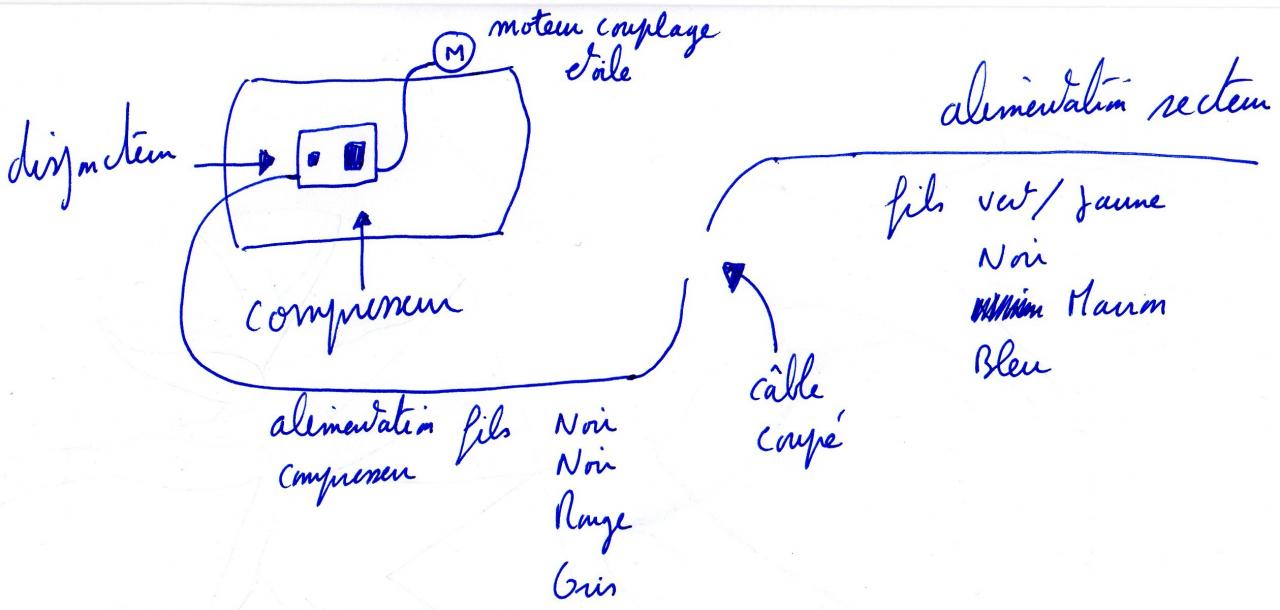 moteur couplage
étoile
M
alimentation secteur
disjoncteur
fils vert / Jaune
Noir
Marron
Bleu
compresseur
câble
coupé
alimentation fils Noir
compresseur Noir
Rouge
Gris